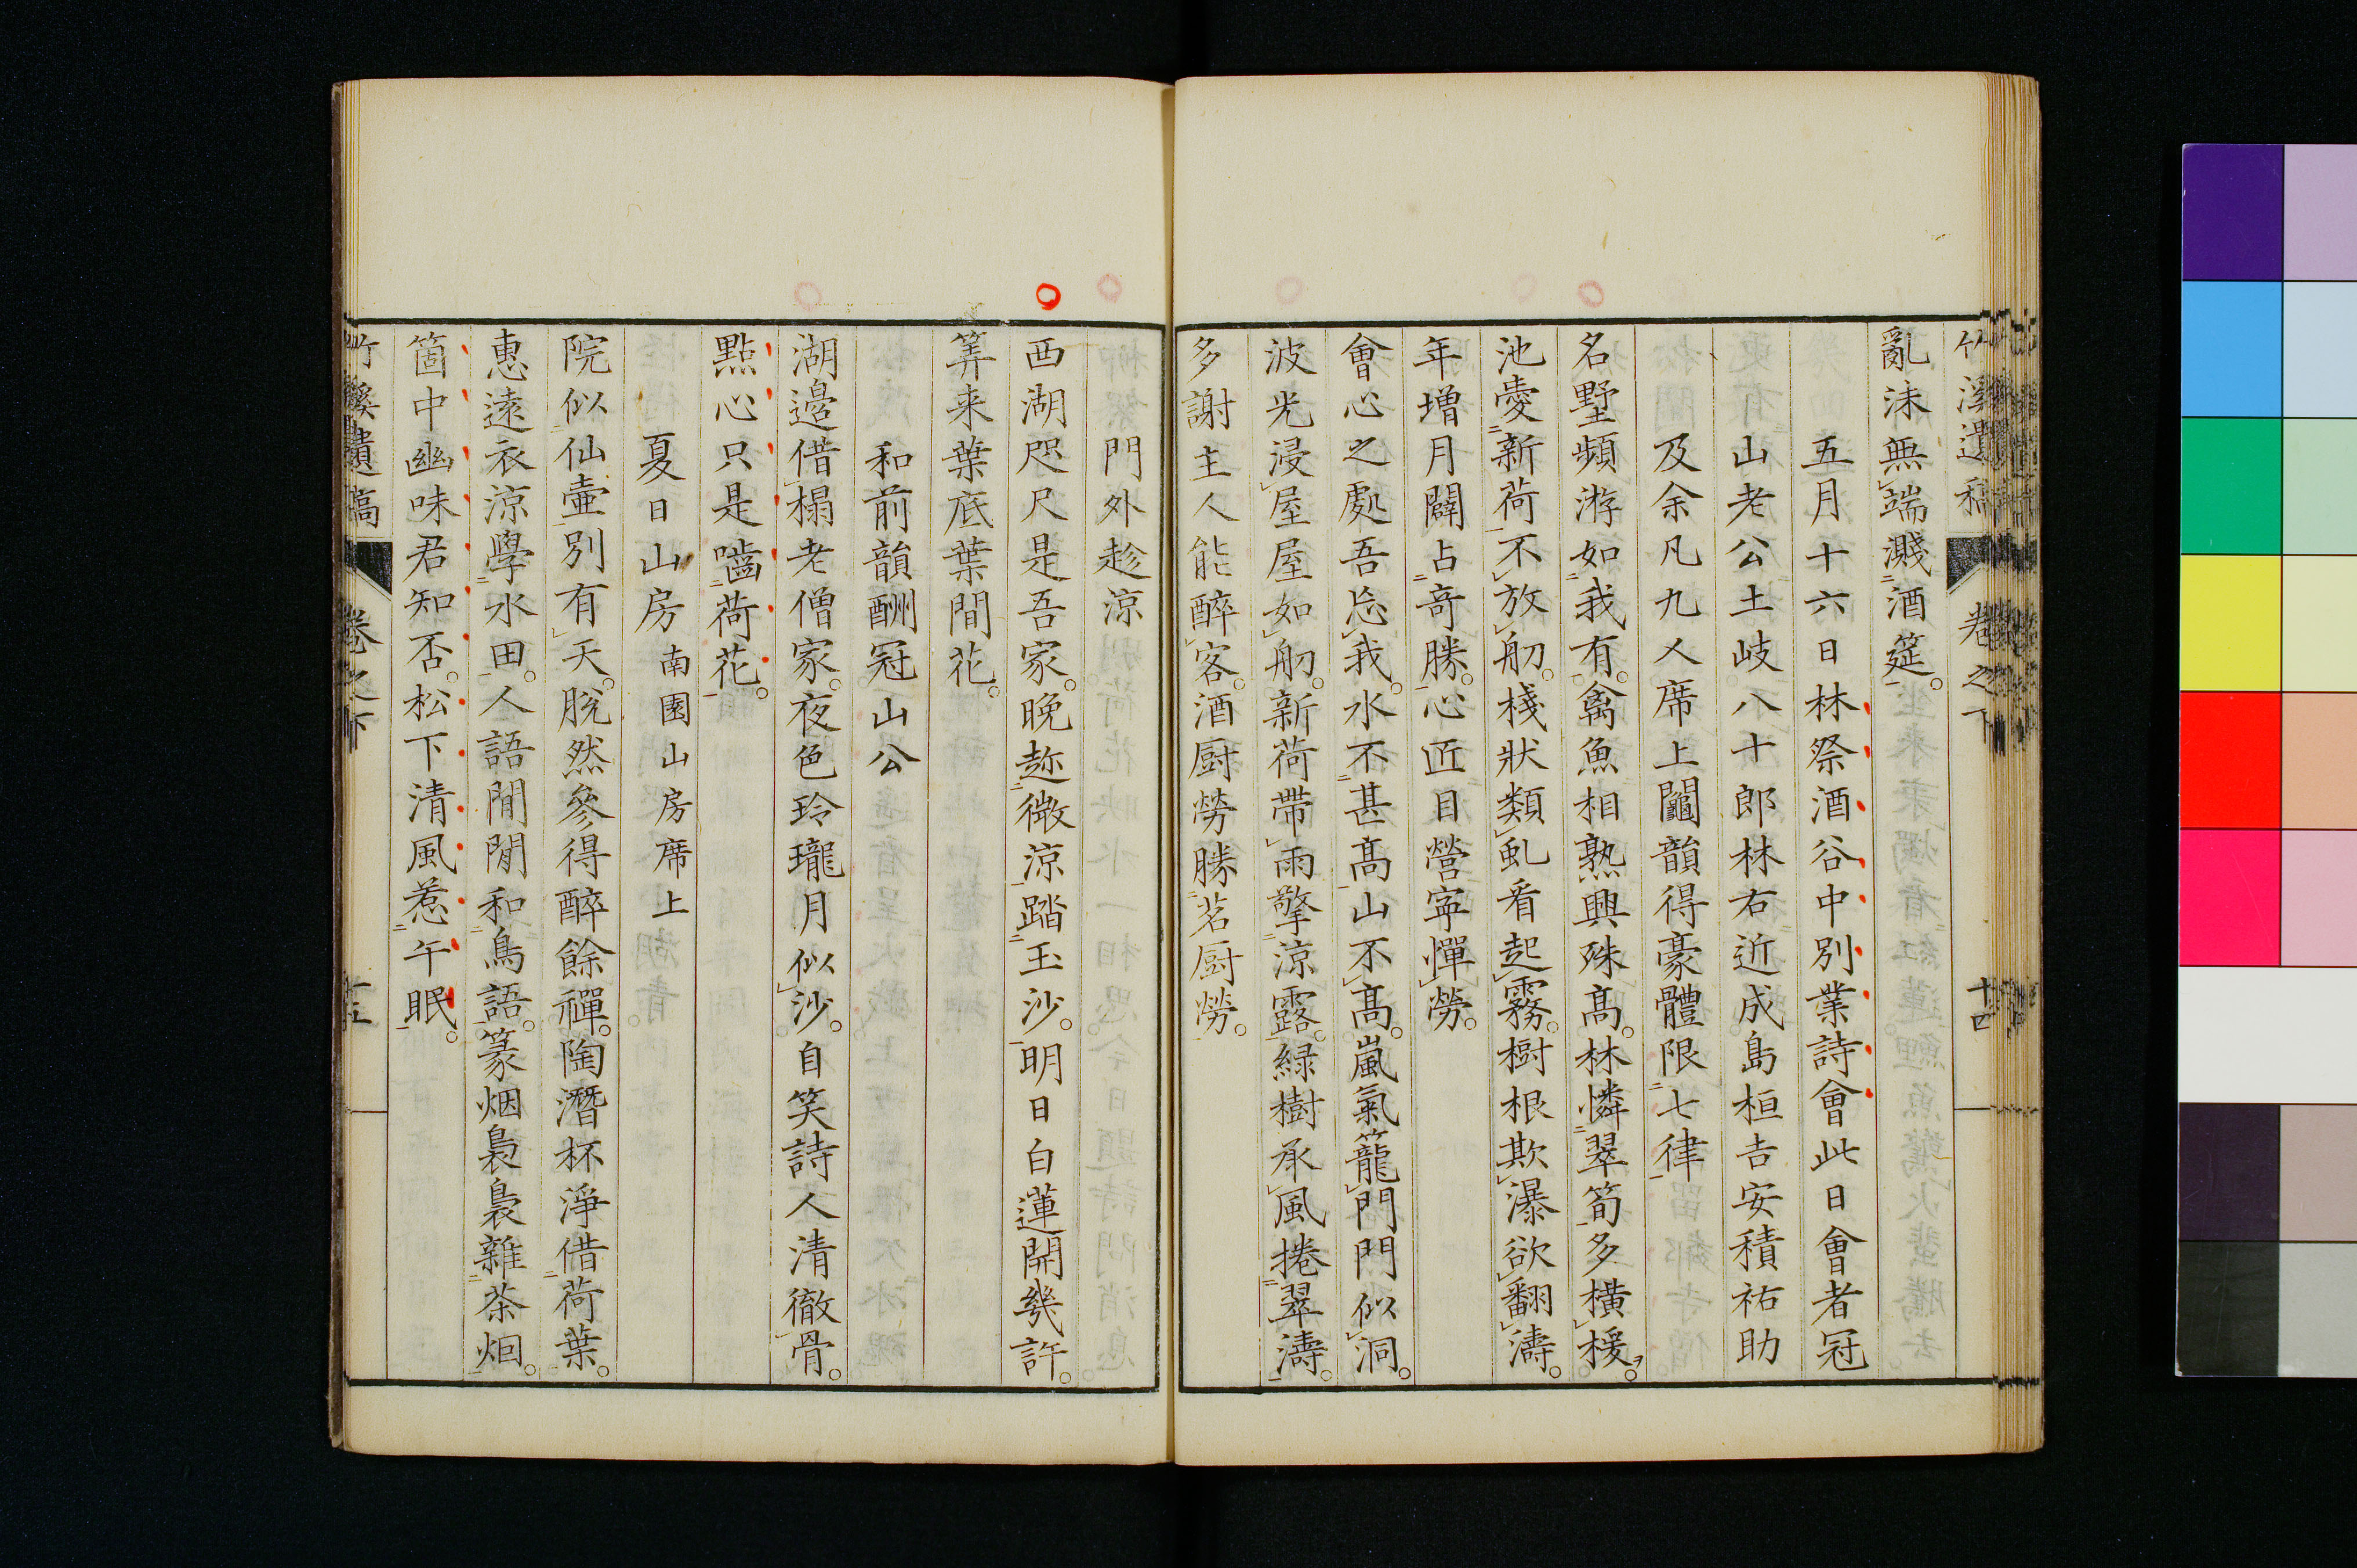 竹溪遺稿 卷之下 十四
亂沫無端濺酒筵。
五月十六日林祭酒谷中別業詩會此日會者冠
山老公土岐八十郎林右近成島桓吉安積祐助
及余凡九人席上鬮韻得豪體限七律
名墅頻游如我有。禽魚相熟興殊高。林憐翠筍多橫援。
池愛新荷不放舠。棧狀類虬看起霧。樹根欺瀑欲翻濤。
年增月闢占竒勝。心匠目營寧憚勞。
會心之處吾忘我。水不甚高山不高。嵐氣籠門門似洞。
波光浸屋屋如舠。新荷帶雨擎涼露。緑樹承風捲翠濤。
多謝主人能醉客。酒厨勞勝茗厨勞。
門外趁涼
西湖咫尺是吾家。晚趂微涼踏玉沙。明日白蓮開幾許。
筭来葉底葉間花。
和前韻酬冠山公
湖邊借榻老僧家。夜色玲瓏月似沙。自笑詩人清徹骨。
點心只是嚙荷花。
夏日山房 南園山房席上
院似仙壷別有天。脫然參得醉餘禪。陶潛杯淨借荷葉。
惠遠衣涼學水田。人語閒閒和鳥語。篆烟裊裊雜茶烟。
箇中幽味君知否。松下清風惹午眠。
竹溪遺稿 卷之下